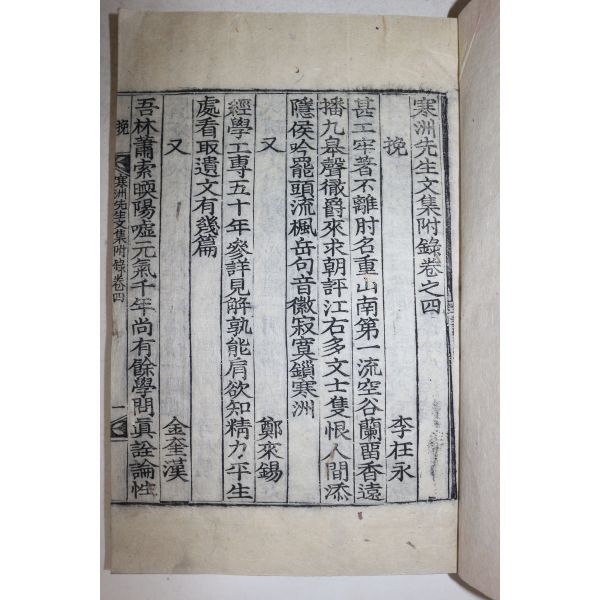 寒洲先生文集附錄卷之四
挽 李在永
甚工牢著不離肘名重山南第一流空谷蘭畱香遠
播九皐聲徹爵來求朝評江右多文士隻恨人間添
隱侯吟罷頭流楓岳句音徽寂寞鎖寒洲
又 鄭來錫
經學工專五十年參詳見解孰能肩欲知精力平生
處看取遺文有幾篇
又 金奎漢
吾林蕭索暎陽嘘元氣千年尚有餘學問眞詮論性
挽 寒洲先生文集附錄卷四 一